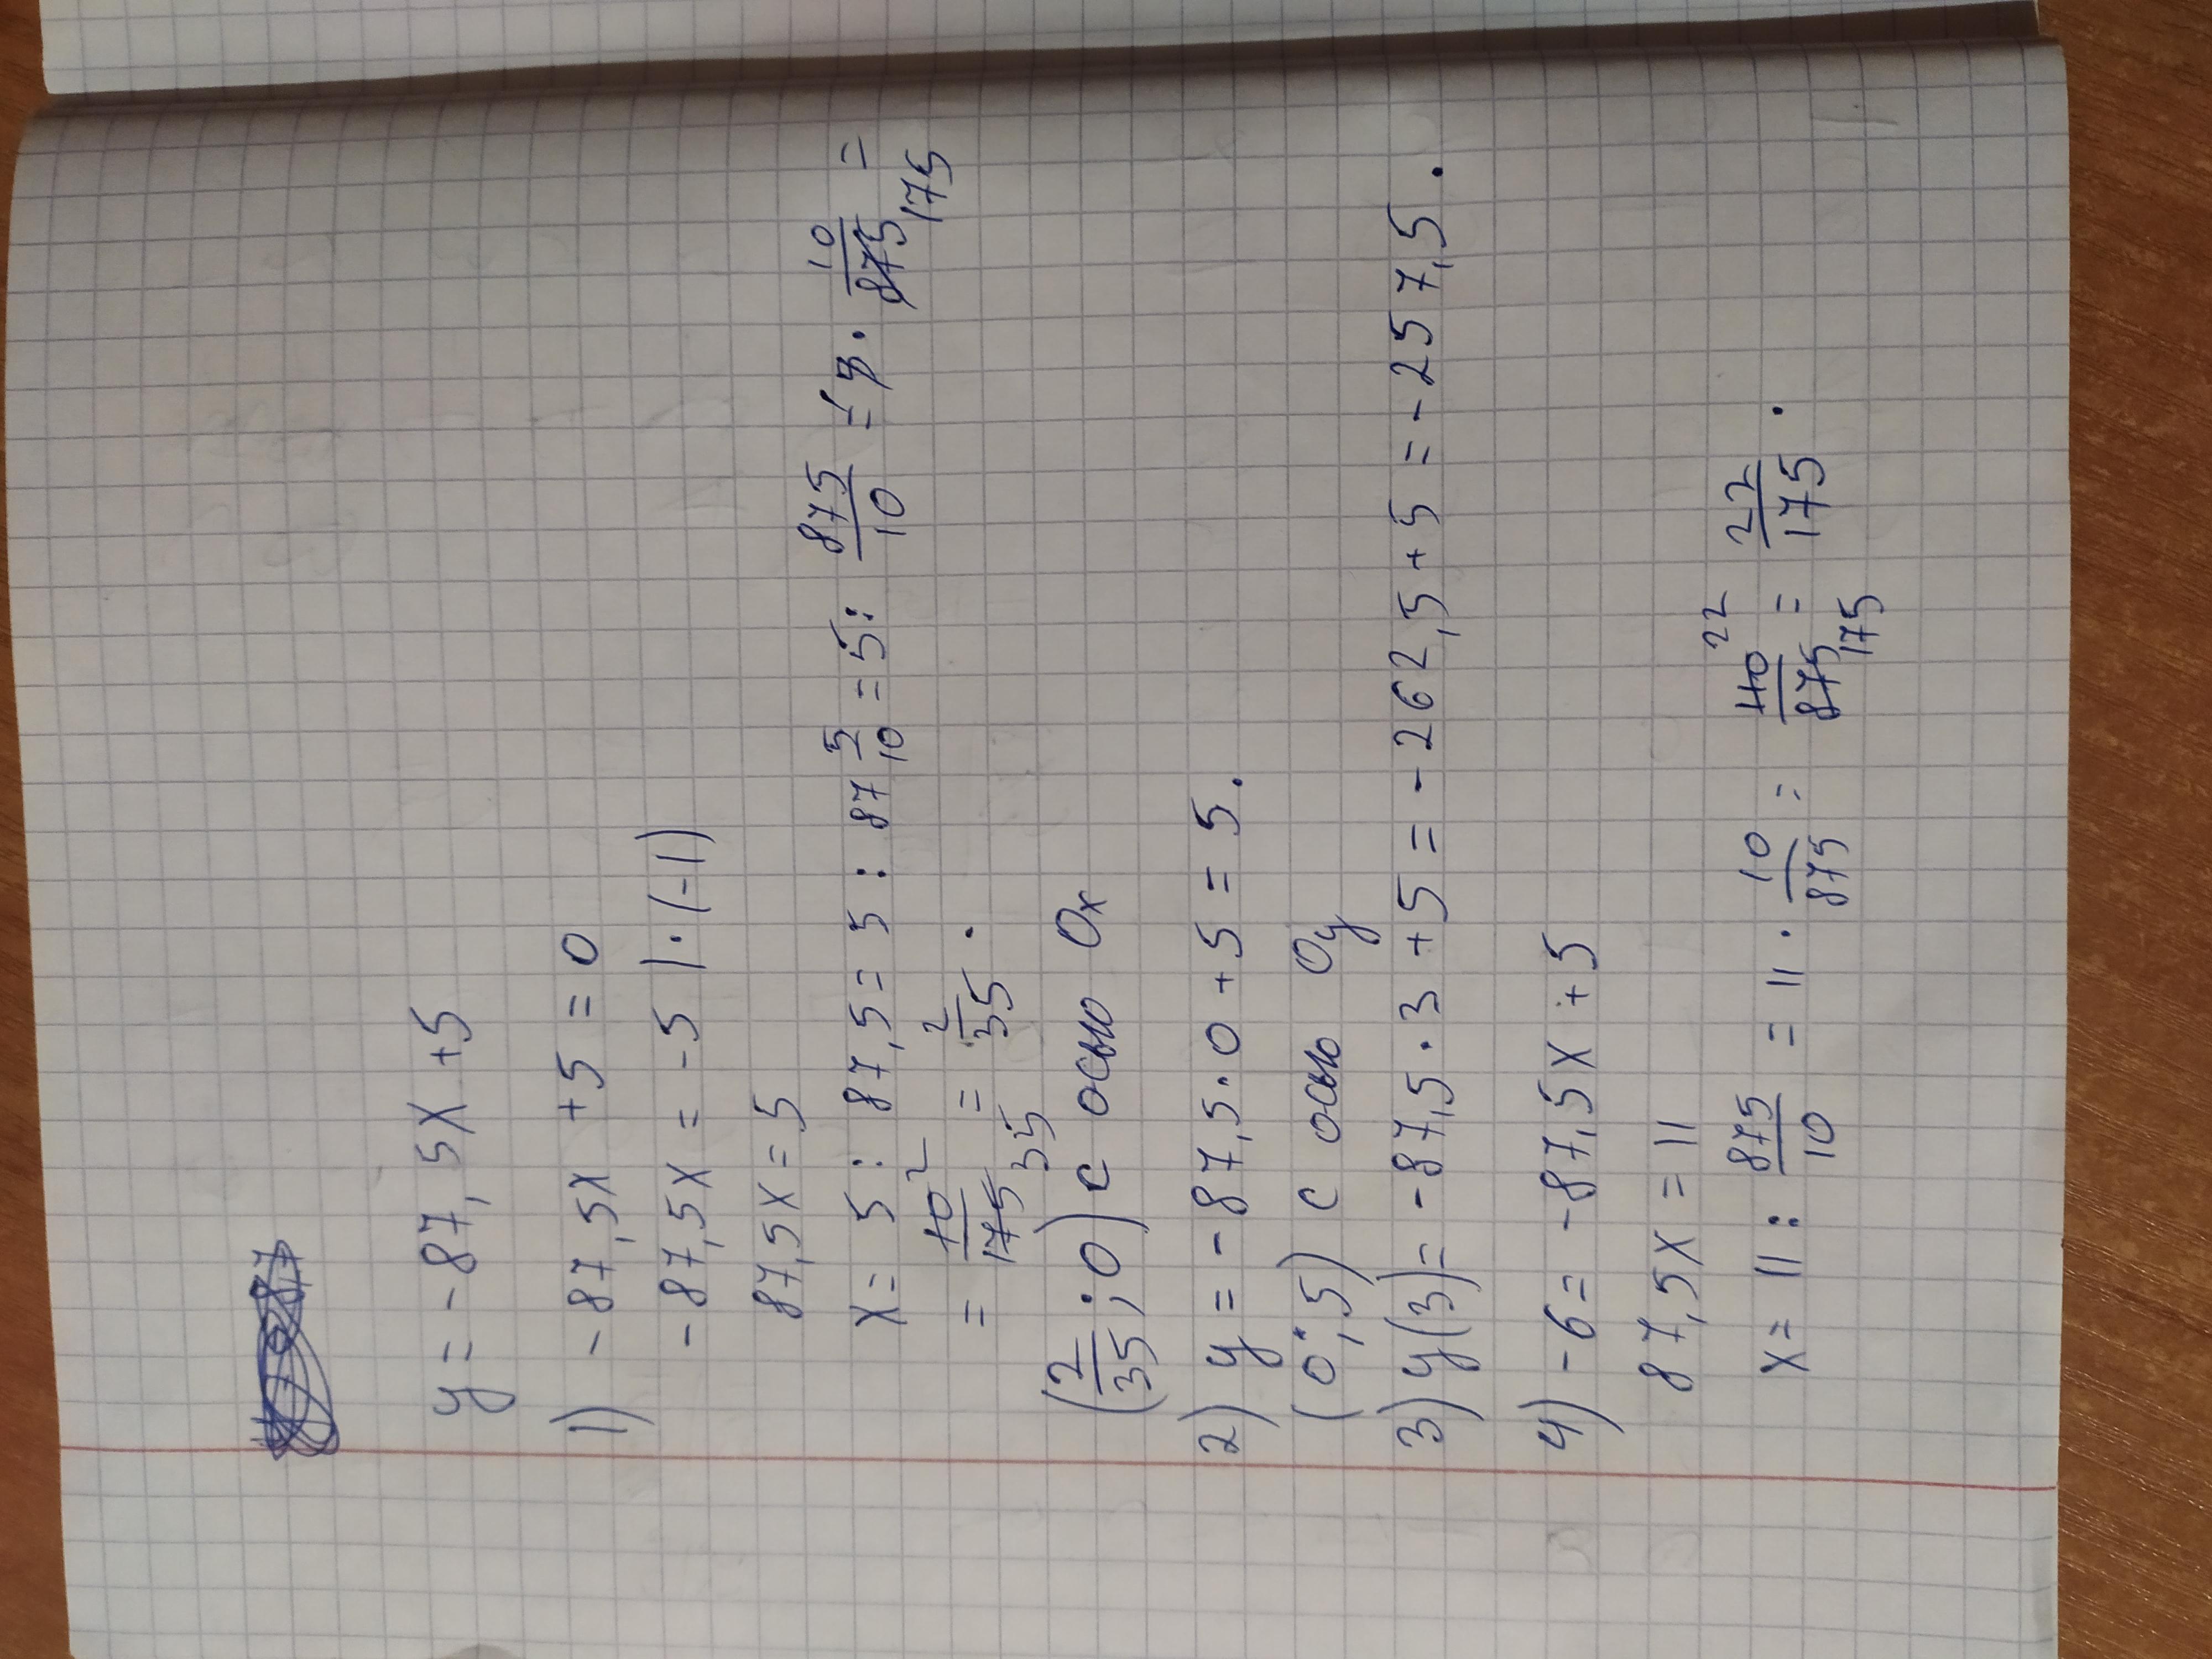 y = -87,5x +5
1) -87,5x +5 = 0
-87,5x = -5 |·(-1)
87,5x = 5
x = 5 : 87,5 = 5 : 87 5/10 = 5 : 875/10 = 5 · 10/875 175 =
= 10 2/175 35 = 2/35.
(2/35; 0) с осью Ox
2) y = -87,5·0 +5 = 5.
(0; 5) с осью Oy
3) y(3) = -87,5·3 +5 = -262,5+5 = -257,5.
4) -6 = -87,5x +5
87,5x = 11
x = 11 : 875/10 = 11 · 10/875 = 110 22/875 175 = 22/175.